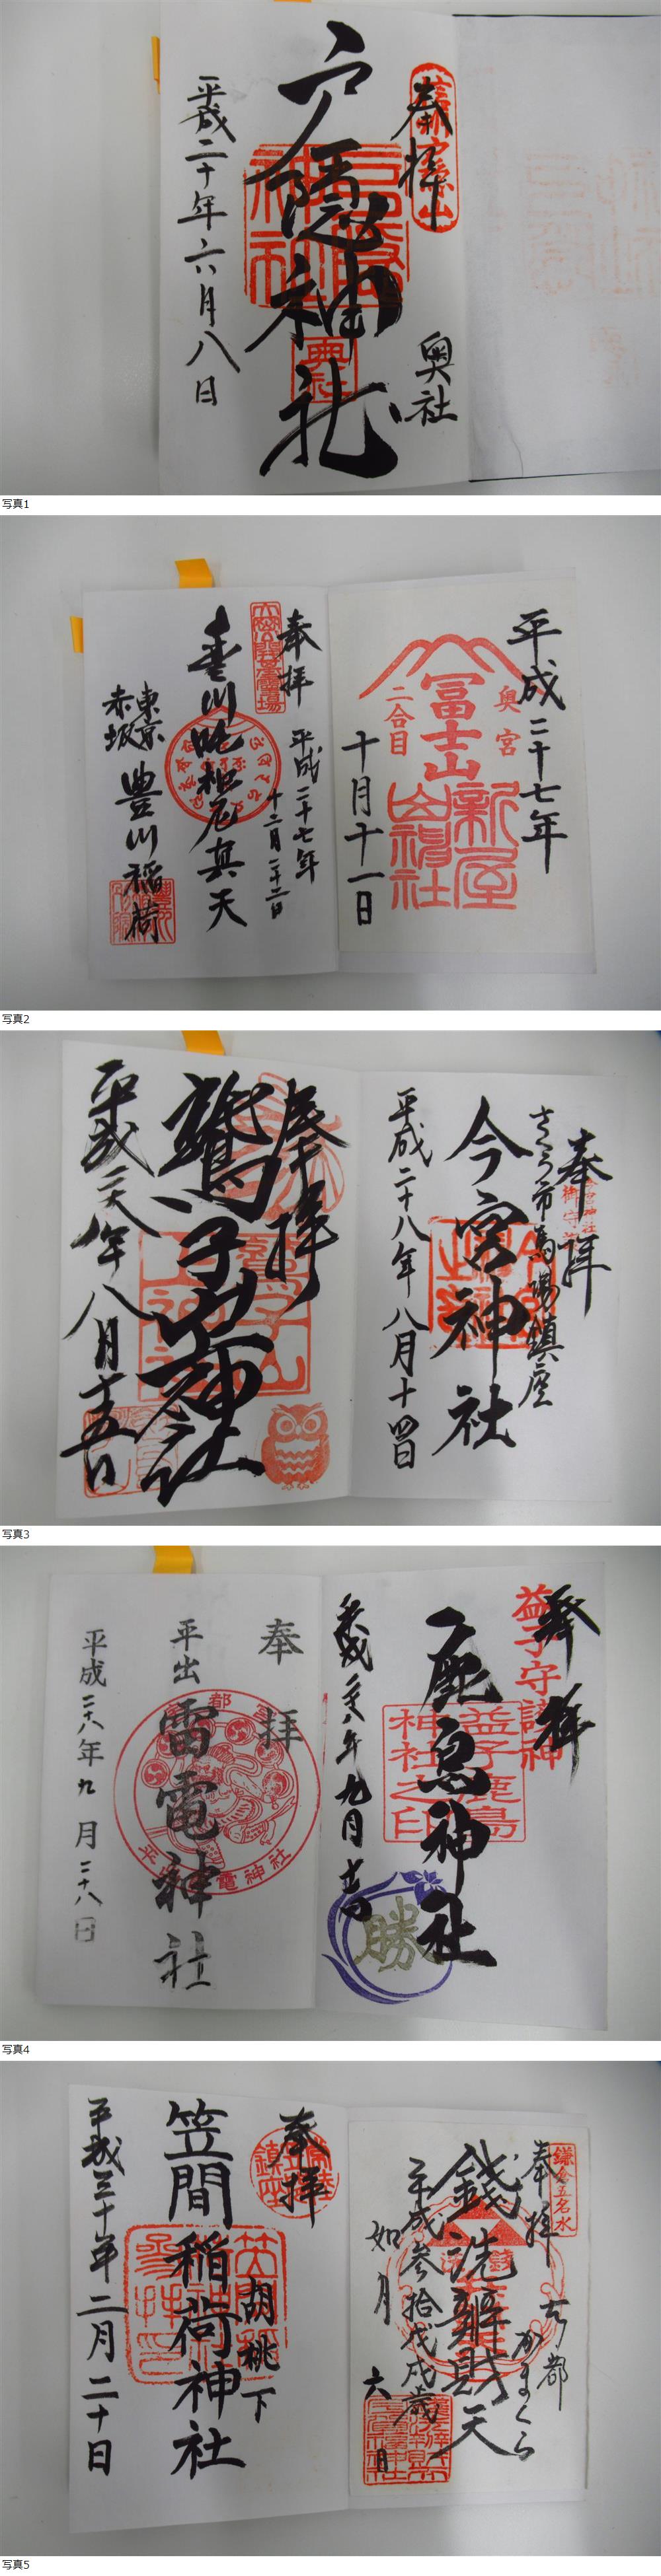 奉拝
奥社
戸隠神社
奥社
平成二十年六月八日
写真1
平成二十七年
奥宮
冨士山
二合目
新屋
山神社
十月十一日
奉拝
平成二十七年
十二月二十二日
豊川吒枳尼真天
東京
赤坂
豊川稲荷
写真2
奉拝
さくら市馬場鎮座
今宮神社
平成二十八年八月十四日
奉拝
鷲子山上神社
平成二十八年八月十五日
写真3
奉拝
益子守護神
鹿島神社
益子鹿島
神社之印
勝
奉拝
平出
雷電神社
平成二十八年九月二十八日
写真4
奉拝
鎌倉五名水
古都
かまくら
銭洗辯財天
平成参拾戊戌歳
如月
六日
奉拝
胡桃下
笠間稲荷神社
平成三十年二月二十日
写真5